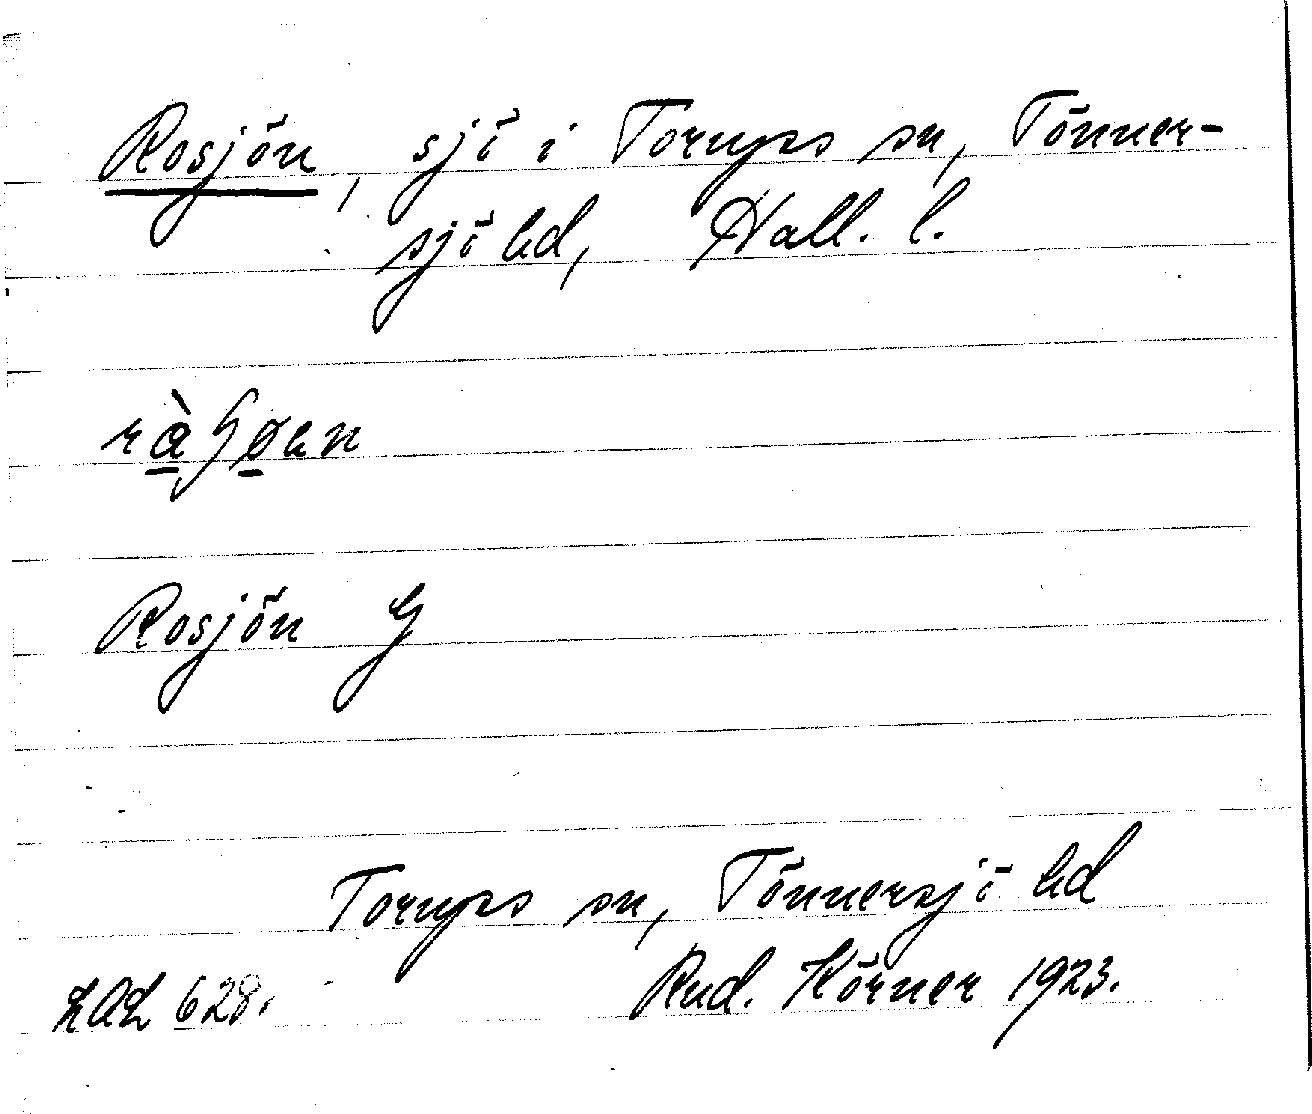 Rosjön, sjö i Torups sn, Tönner-
sjö hd, Hall. l.
Rosjön G
Torups sn, Tönnersjö hd
LAL 628. Rud. Körner 1923.